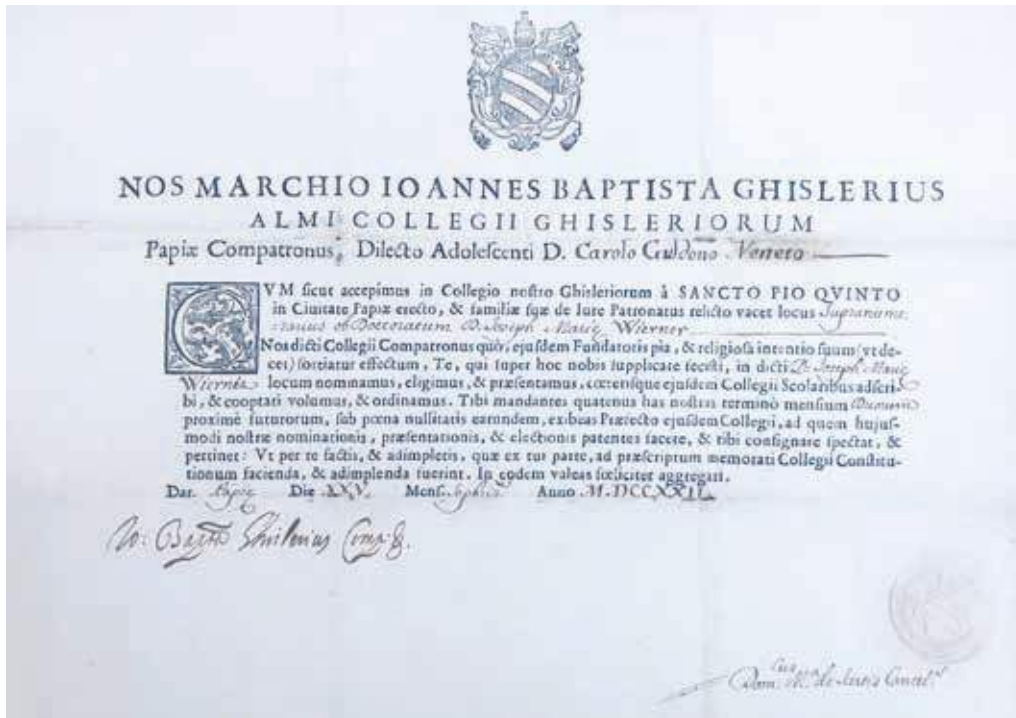 NOS MARCHIO IOANNES BAPTISTA GHISLERIUS
ALMI COLLEGII GHISLERIORUM
Papiæ Compatronus, Dilecto Adoleſcenti D. Carolo Guldono Veneto
CVM ſicut accepimus in Collegio noſtro Ghisleriorum à SANCTO PIO QVINTO
in Ciuitate Papiæ erecto, & familiæ ſuæ de Iure Patronatus relicto vacet locus Supranume-
rarius ob Doctoratum D. Joseph Marię Wierner
Nos dicti Collegii Compatronus quò, ejuſdem Fundatoris pia, & religioſa intentio ſuum (vt de-
cet) ſortiatur effectum, Te, qui ſuper hoc nobis ſupplicare feciſti, in dicti D. Joseph Marię
Wierner locum nominamus, eligimus, & præſentamus, cœteriſque ejuſdem Collegii Scolaribus adſcri-
bi, & cooptari volumus, & ordinamus. Tibi mandantes quatenus has noſtras terminò menſium Duorum
proximè futurorum, ſub pœna nullitatis earundem, exibeas Præfecto ejuſdem Collegii, ad quem hujuſ-
modi noſtræ nominationis, præſentationis, & electionis patentes facere, & tibi conſignare ſpectat, &
pertinet: Vt per te factis, & adimpletis, quæ ex tui parte, ad præſcriptum memorati Collegii Conſtitu-
tionum facienda, & adimplenda fuerint. In eodem valeas fœliciter aggregari.
Dat. Papię Die XXV. Menſ. Anno M.DCCXXII
Io: Bapta Ghislerius Comp.